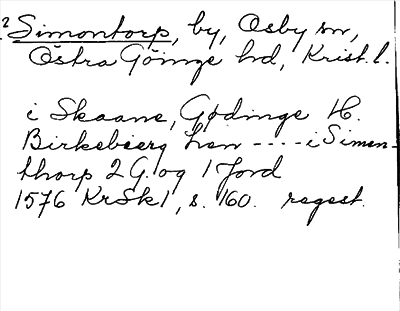 2 Simontorp, by, Osby sn,
Östra Göinge hd, Krist. l.
i Skaane, Gødinge H.
Birkebierg Len ---- i Simon-
thorp 2 G. og 1 Jord
1576 KrSk1, s. 160. regest.